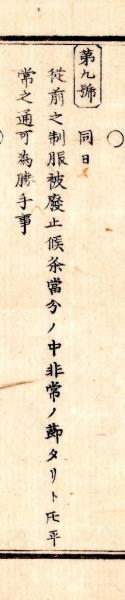 第九號
同日
從前之制服被廢止候条當分ノ中非常ノ節タリトモ平
常之通可為勝手事